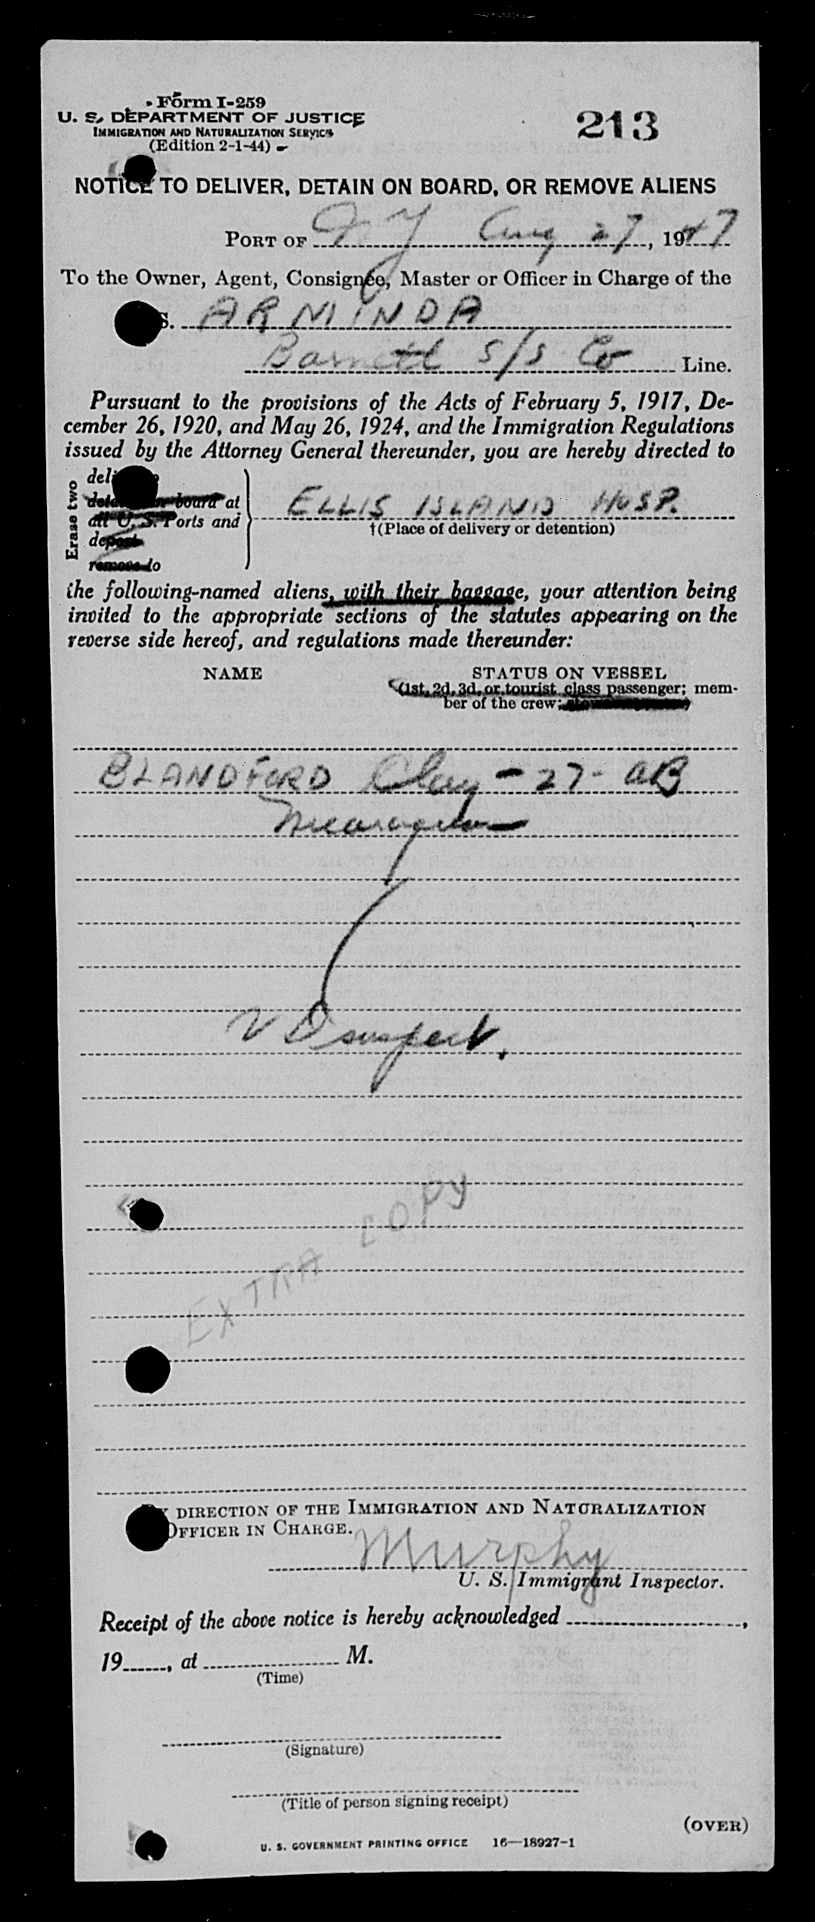 Form I-259
U. S. DEPARTMENT OF JUSTICE
IMMIGRATION AND NATURALIZATION SERVICE
(Edition 2-1-44)
213
NOTICE TO DELIVER, DETAIN ON BOARD, OR REMOVE ALIENS
PORT OF N Y Aug 27, 1947
To the Owner, Agent, Consignee, Master or Officer in Charge of the
S. ARMINDA
Barnett S/S Co Line.
Pursuant to the provisions of the Acts of February 5, 1917, De-
cember 26, 1920, and May 26, 1924, and the Immigration Regulations
issued by the Attorney General thereunder, you are hereby directed to
Erase two
detain on board at
all U. S. Ports and
deport
remove to
ELLIS ISLAND HOSP.
†(Place of delivery or detention)
the following-named aliens, with their baggage, your attention being
invited to the appropriate sections of the statutes appearing on the
reverse side hereof, and regulations made thereunder:
NAME STATUS ON VESSEL
(1st, 2d, 3d, or tourist class passenger; mem-
ber of the crew;
BLANDFORD Clay - 27 - AB
Nicaraguan
V D suspect.
EXTRA COPY
BY DIRECTION OF THE IMMIGRATION AND NATURALIZATION
OFFICER IN CHARGE.
Murphy
U. S. Immigrant Inspector.
Receipt of the above notice is hereby acknowledged ,
19 , at M.
(Time)
(Signature)
(Title of person signing receipt)
(OVER)
U. S. GOVERNMENT PRINTING OFFICE 16—18927-1